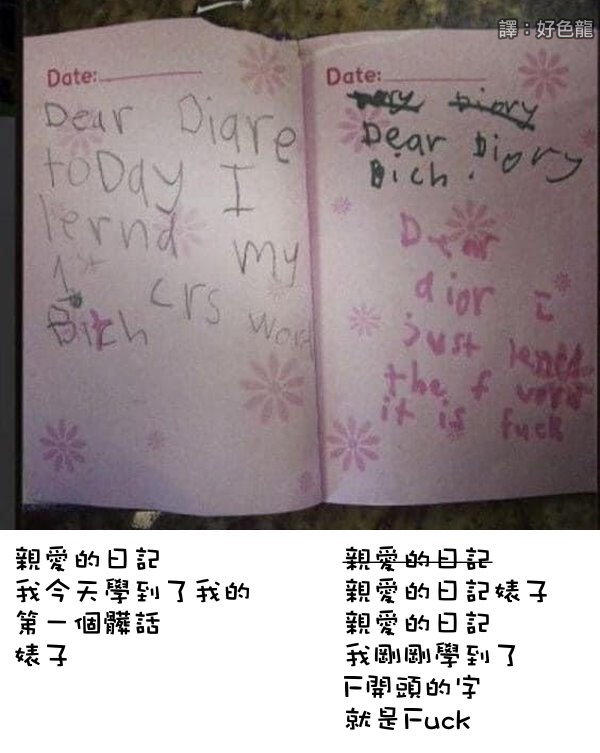 譯：好色龍
Date:
Dear Diqre
toDay I
lernd my
1st crs word
Bitch
Date:
Dory Diory
Dear Diory
Bich.
Dear
dior I
just lened
the f word
it is fuck
親愛的日記
我今天學到了我的
第一個髒話
婊子
親愛的日記
親愛的日記婊子
親愛的日記
我剛剛學到了
F開頭的字
就是Fuck